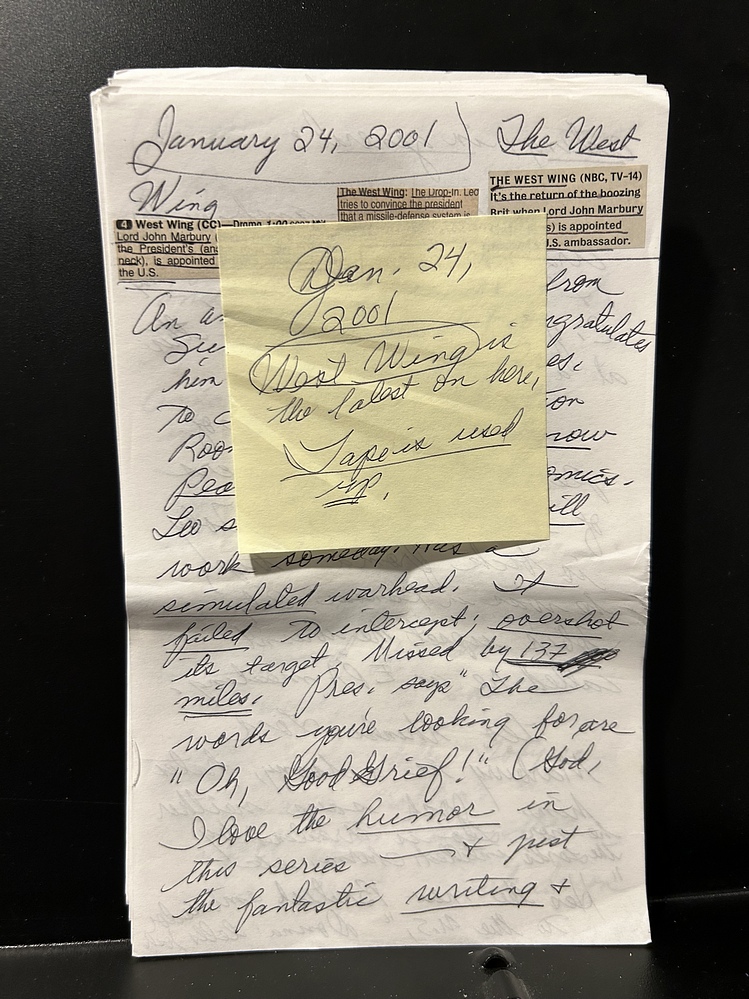 January 24, 2001 The West
Wing
The West Wing: The Drop-In. Leo
tries to convince the president
that a missile-defense system is
THE WEST WING (NBC, TV–14)
It's the return of the boozing
Brit when Lord John Marbury
s) is appointed
U.S. ambassador.
4 West Wing (CC)—Drama
Lord John Marbury
the President's (an
neck), is appointed
the U.S.
Jan. 24,
2001
West Wing is
the latest on here,
Tape is used
up.
An from
ngratulates
him es.
To on
Roo now
Peo omics.
Leo s ill
work someday. Has a
simulated warhead. It
failed to intercept; overshot
its target. Missed by 137
miles. Pres. says "The
words you're looking for are
"Oh, Good Grief!" (God,
I love the humor in
this series — + just
the fantastic writing +